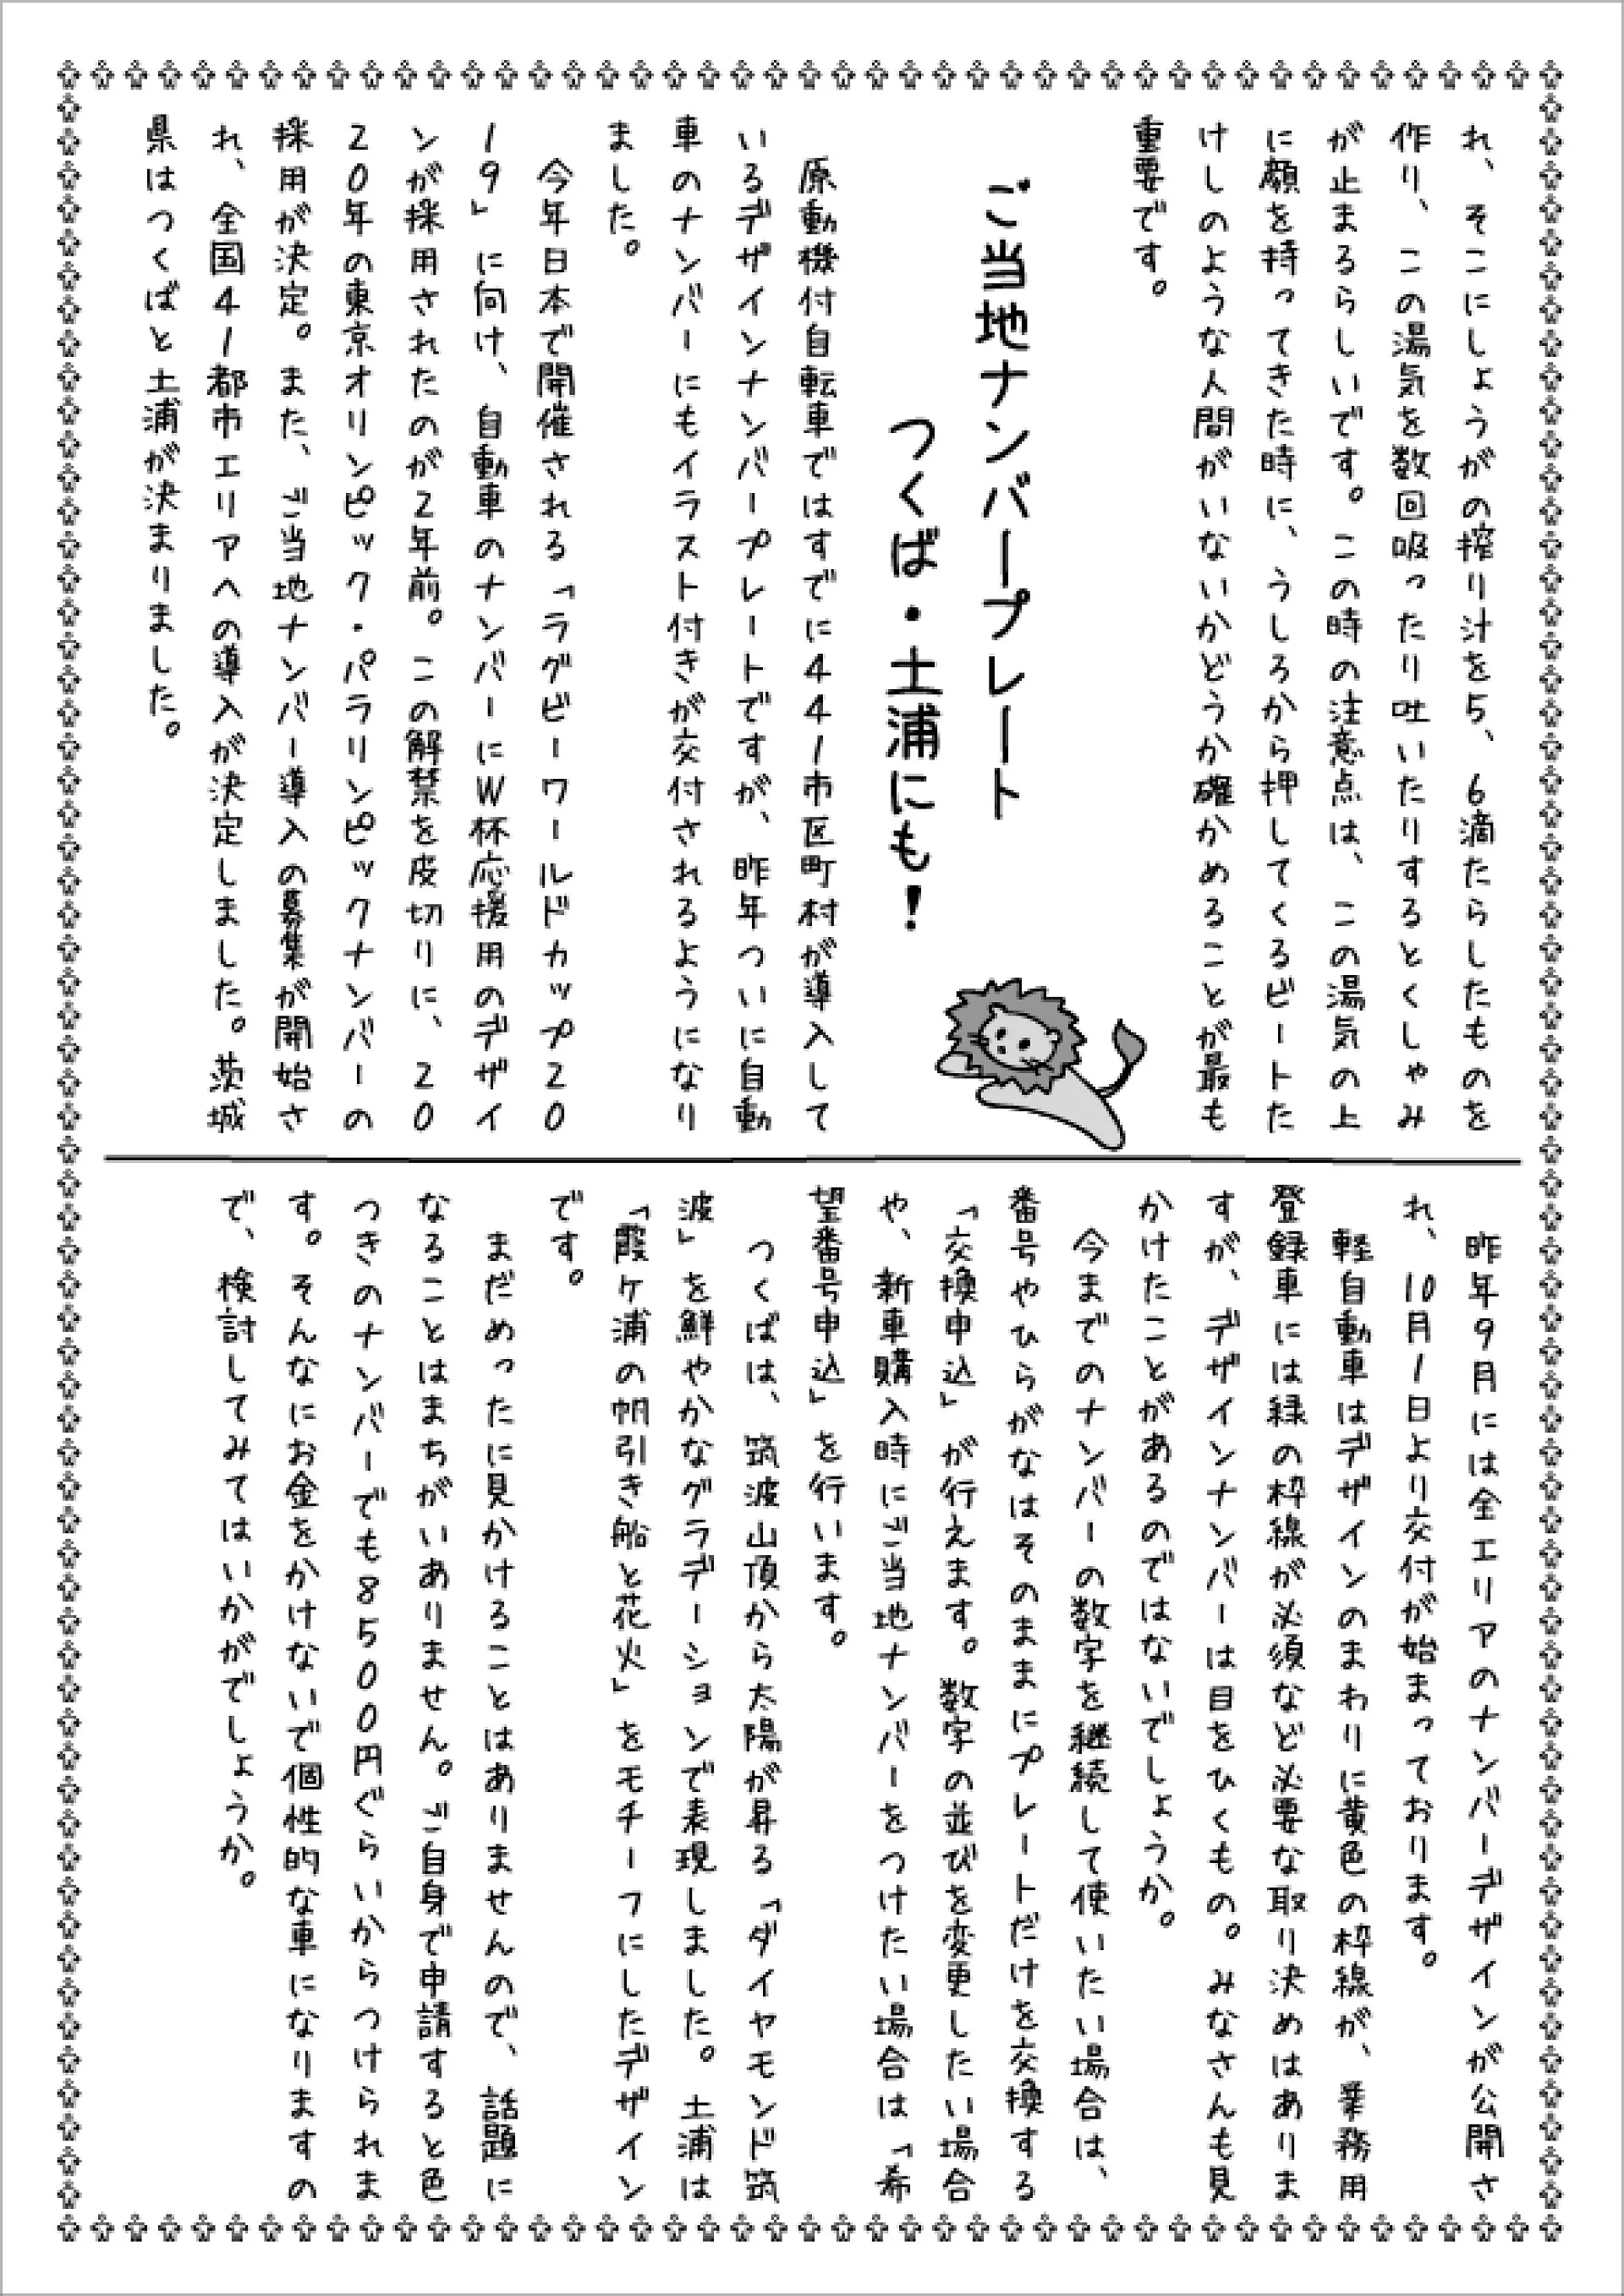 れ、そこにしょうがの搾り汁を5、6滴たらしたものを
作り、この湯気を数回吸ったり吐いたりするとくしゃみ
が止まるらしいです。この時の注意点は、この湯気の上
に顔を持ってきた時に、うしろから押してくるビートた
けしのような人間がいないかどうか確かめることが最も
重要です。
ご当地ナンバープレート
つくば・土浦にも！
原動機付自転車ではすでに441市区町村が導入して
いるデザインナンバープレートですが、昨年ついに自動
車のナンバーにもイラスト付きが交付されるようになり
ました。
今年日本で開催される「ラグビーワールドカップ20
19」に向け、自動車のナンバーにW杯応援用のデザイ
ンが採用されたのが2年前。この解禁を皮切りに、20
20年の東京オリンピック・パラリンピックナンバーの
採用が決定。また、ご当地ナンバー導入の募集が開始さ
れ、全国41都市エリアへの導入が決定しました。茨城
県はつくばと土浦が決まりました。
昨年9月には全エリアのナンバーデザインが公開さ
れ、10月1日より交付が始まっております。
軽自動車はデザインのまわりに黄色の枠線が、業務用
登録車には緑の枠線が必須など必要な取り決めはありま
すが、デザインナンバーは目をひくもの。みなさんも見
かけたことがあるのではないでしょうか。
今までのナンバーの数字を継続して使いたい場合は、
番号やひらがなはそのままにプレートだけを交換する
「交換申込」が行えます。数字の並びを変更したい場合
や、新車購入時にご当地ナンバーをつけたい場合は「希
望番号申込」を行います。
つくばは、筑波山頂から太陽が昇る「ダイヤモンド筑
波」を鮮やかなグラデーションで表現しました。土浦は
「霞ケ浦の帆引き船と花火」をモチーフにしたデザイン
です。
まだめったに見かけることはありませんので、話題に
なることはまちがいありません。ご自身で申請すると色
つきのナンバーでも8500円ぐらいからつけられま
す。そんなにお金をかけないで個性的な車になりますの
で、検討してみてはいかがでしょうか。